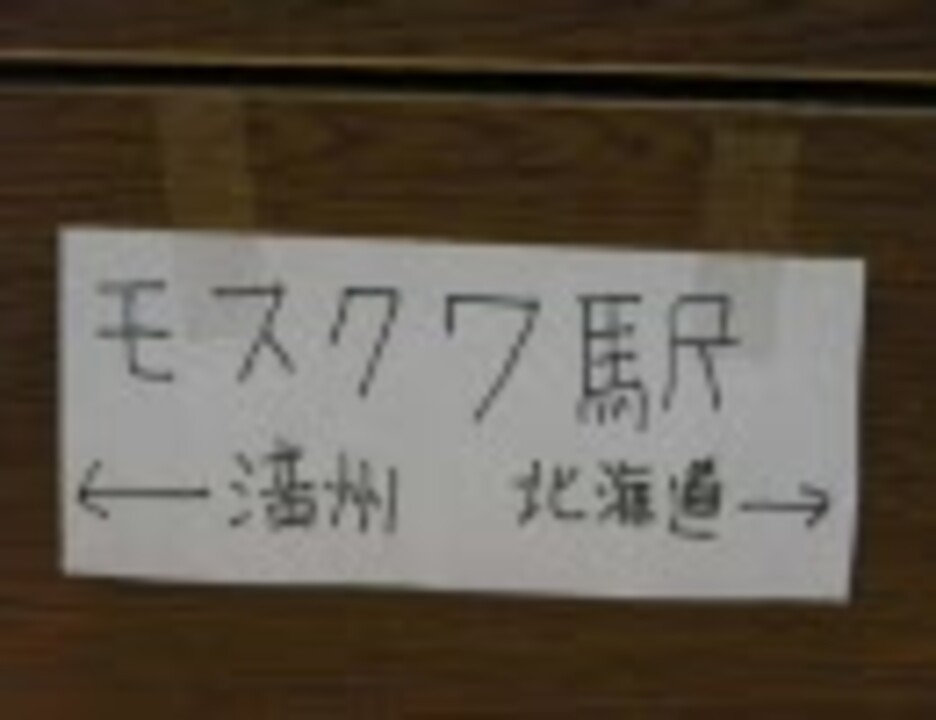 モスクワ駅
← 満州 北海道 →